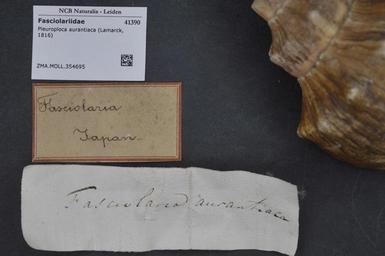 NCB Naturalis - Leiden
Fasciolariidae 41390
Pleuroploca aurantiaca (Lamarck,
1816)
ZMA.MOLL.354695
Fasciolaria
Japan
Fasciolaria aurantiaca